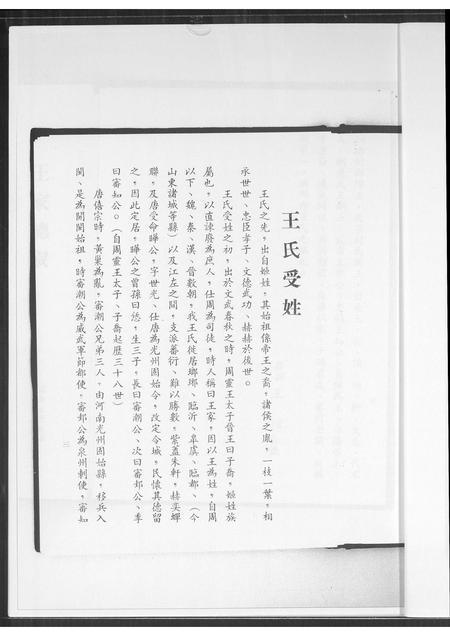 王氏受姓
王氏之先，出自姬姓，其始祖係帝王之裔，諸侯之胤，一枝一葉，相
承世世、忠臣孝子、文德武功、赫赫於後世。
王氏受姓之初，出於文武春秋之時，周靈王太子晉王曰子喬，姬姓族
屬也，以直諫廢為庶人，仕周為司徒，時人稱曰王家，因以王為姓，自周
以下、魏、秦、漢、晉數朝，我王氏徙居瑯琊、臨沂、皐虞、臨都、（今
山東諸城等縣）以及江左之間，支派蕃衍、難以勝數，紫蓋朱軒，赫奕蟬
聯，及唐受命曄公，字世光、仕唐為光州固始令，改定今城，民懷其德留
之，因此定居，曄公之曾孫曰恁，生三子，長曰審潮公、次曰審邽公、季
曰審知公。（自周靈王太子、子喬起歷三十八世）
唐僖宗時，黃巢為亂，審潮公兄弟三人，由河南光州固始縣，移兵入
閩、是為開閩始祖，時審潮公為威武軍節都使，審邽公為泉州刺使，審知
三